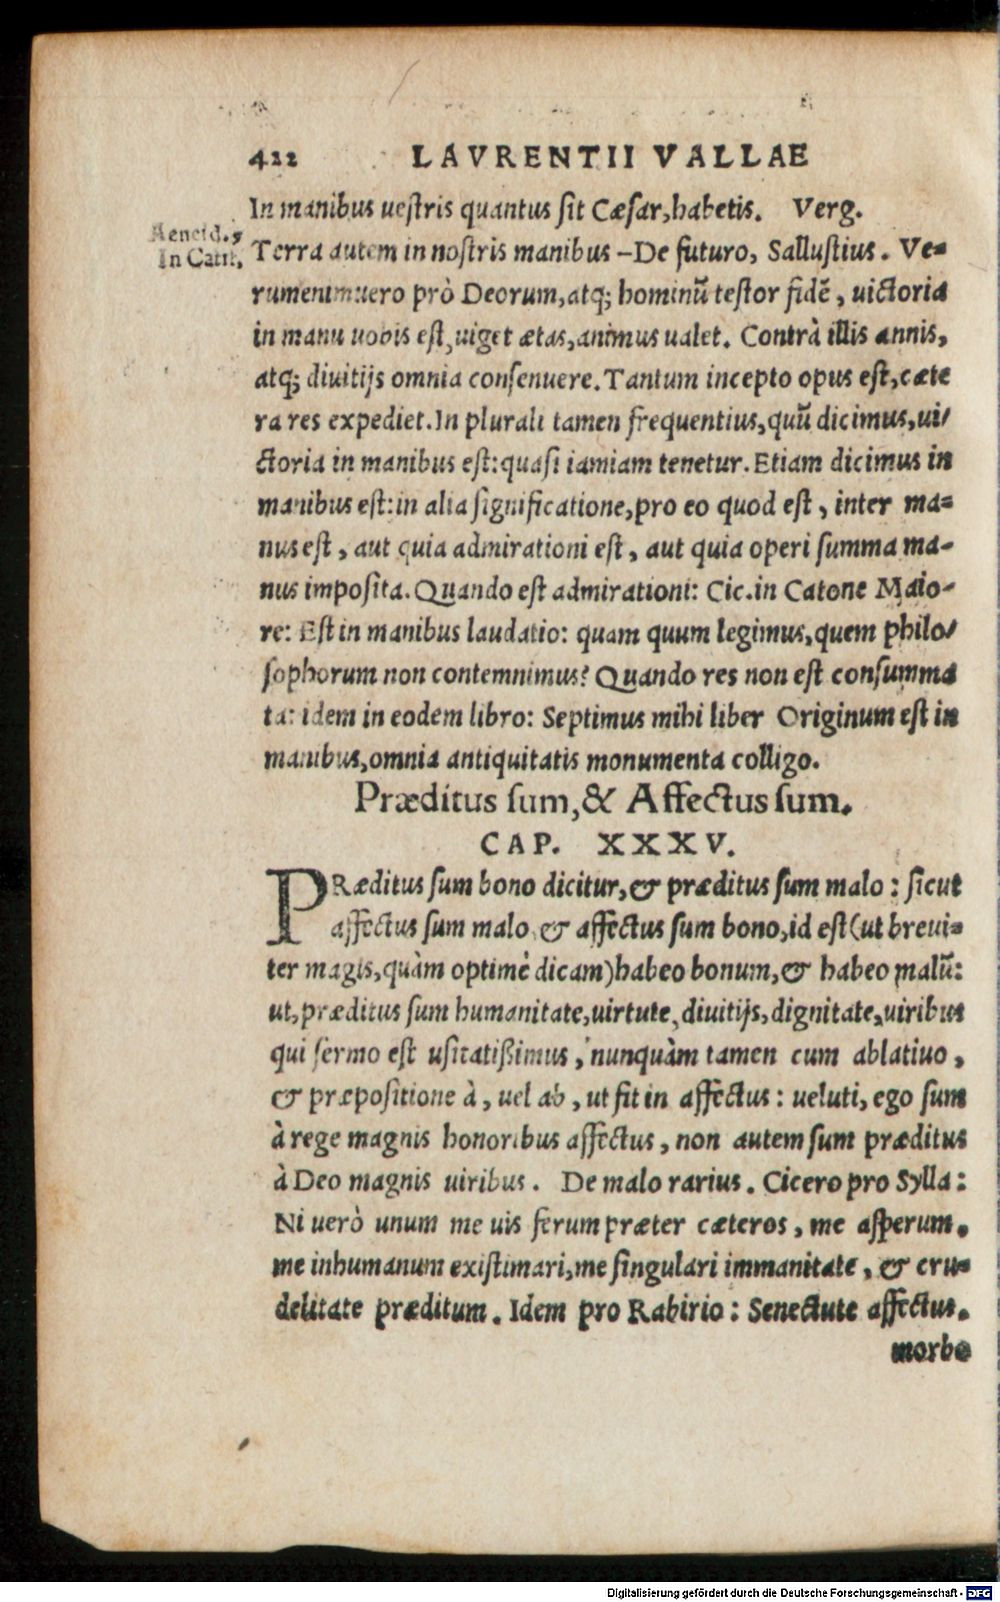 422 LAVRENTII VALLAE
In manibus uestris quantus sit Cæsar, habetis. Verg.
Aeneid. 5
Terra autem in nostris manibus –De futuro, Sallustius. Ve-
In Catil.
rumenimuero prò Deorum, atq; hominū testor fidē, uictoria
in manu uobis est, uiget ætas, animus ualet. Contrà illis annis,
atq; diuitijs omnia consenuere. Tantum incepto opus est, cæte
ra res expediet. In plurali tamen frequentius, quū dicimus, ui/
ctoria in manibus est: quasi iamiam tenetur. Etiam dicimus in
manibus est: in alia significatione, pro eo quod est, inter ma-
nus est, aut quia admirationi est, aut quia operi summa ma-
nus imposita. Quando est admirationi: Cic. in Catone Maio-
re: Est in manibus laudatio: quam quum legimus, quem philo/
sophorum non contemnimus? Quando res non est consumma
ta: idem in eodem libro: Septimus mihi liber Originum est in
manibus, omnia antiquitatis monumenta colligo.
Præditus sum, & Affectus sum.
CAP. XXXV.
PRæditus sum bono dicitur, & præditus sum malo: sicut
affectus sum malo, & affectus sum bono, id est (ut breui-
ter magis, quàm optimè dicam) habeo bonum, & habeo malū:
ut, præditus sum humanitate, uirtute, diuitijs, dignitate, uiribus
qui sermo est usitatißimus, nunquàm tamen cum ablatiuo,
& præpositione à, uel ab, ut fit in affectus: ueluti, ego sum
à rege magnis honoribus affectus, non autem sum præditus
à Deo magnis uiribus. De malo rarius. Cicero pro Sylla:
Ni uerò unum me uis ferum præter cæteros, me asperum,
me inhumanum existimari, me singulari immanitate, & cru-
delitate præditum. Idem pro Rabirio: Senectute affectus,
morbo
Digitalisierung gefördert durch die Deutsche Forschungsgemeinschaft - DFG